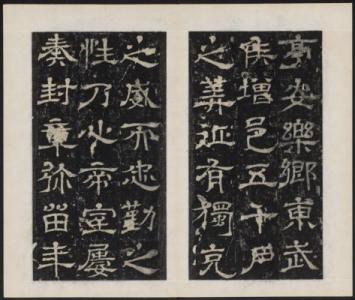 亭安樂鄉東武
侯增邑五千戶
之美近有獨克
之威而忠勤之
性乃心帝室屢
奏封章弥留年